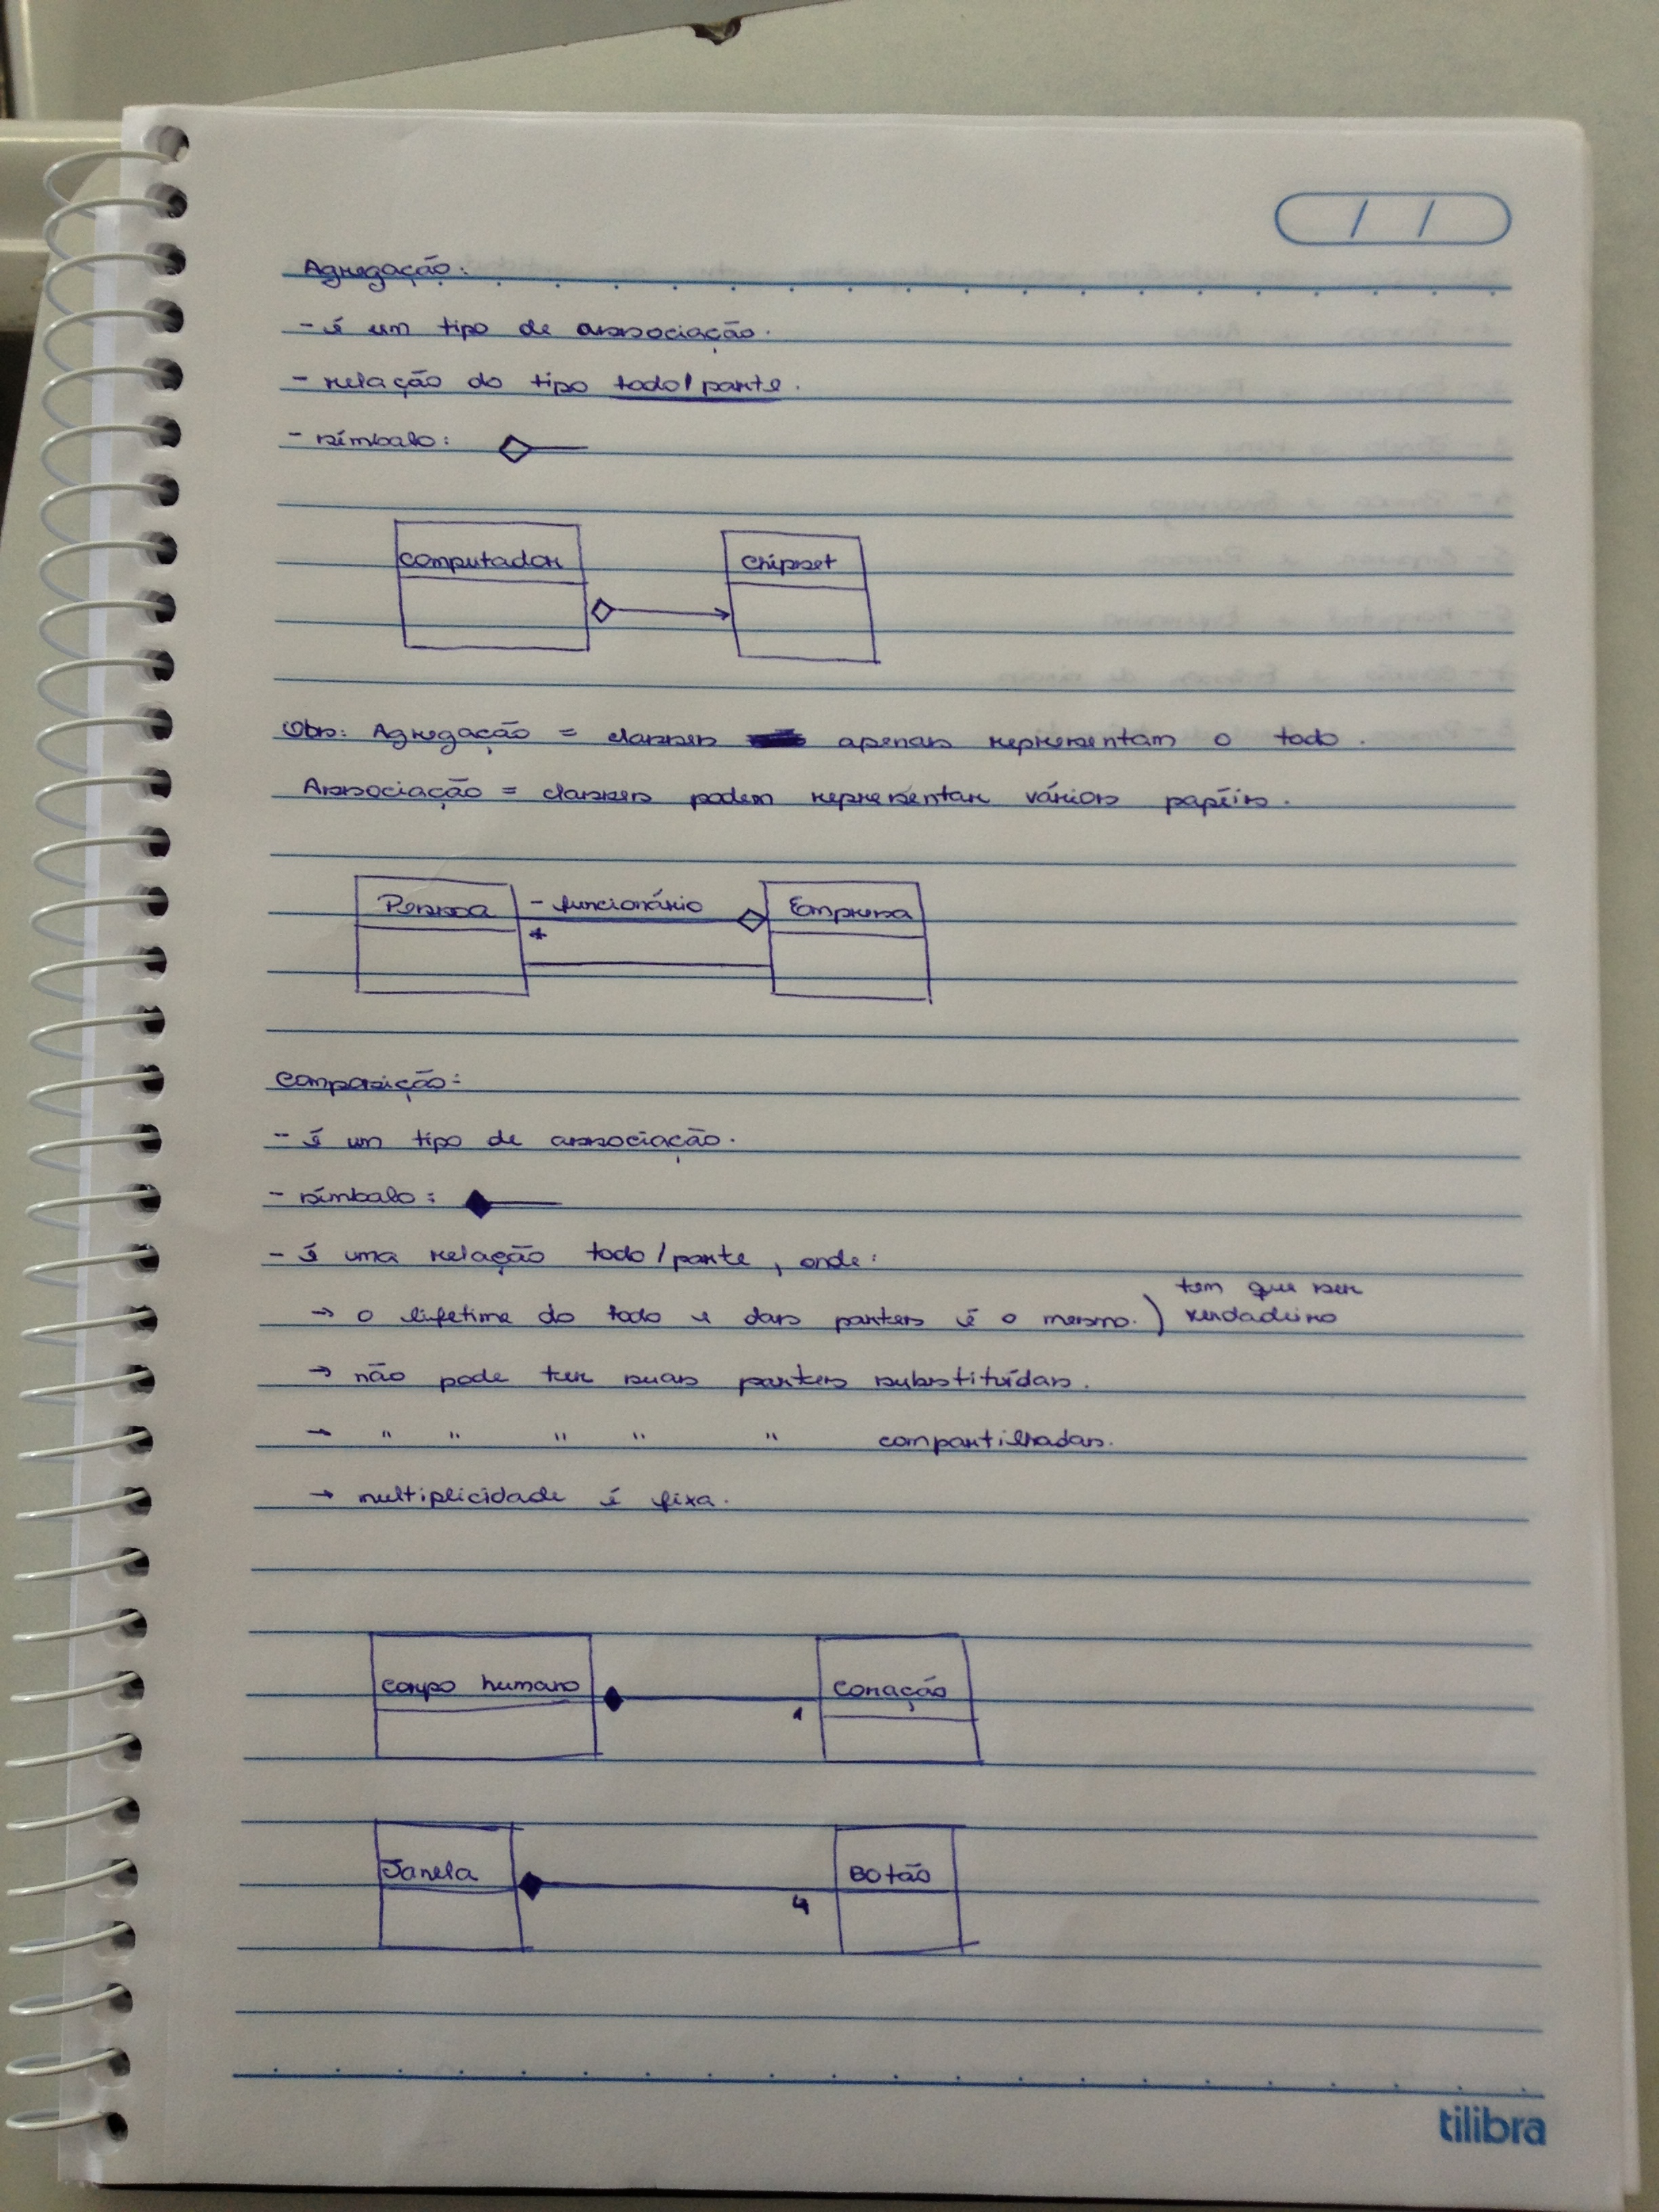 / /
Agregação:
- é um tipo de associação.
- relação do tipo todo/parte.
- símbolo:
Computador
Chipset
Obs: Agregação = classes apenas representam o todo.
Associação = classes podem representar vários papéis.
Pessoa
- funcionário
Empresa
*
Composição:
- é um tipo de associação.
- símbolo:
- é uma relação todo/parte, onde:
→ o lifetime do todo e das partes é o mesmo. ) tem que ser
verdadeiro
→ não pode ter suas partes substituídas.
→ " " " " " compartilhadas.
→ multiplicidade é fixa.
Corpo humano
Coração
1
Janela
Botão
4
tilibra